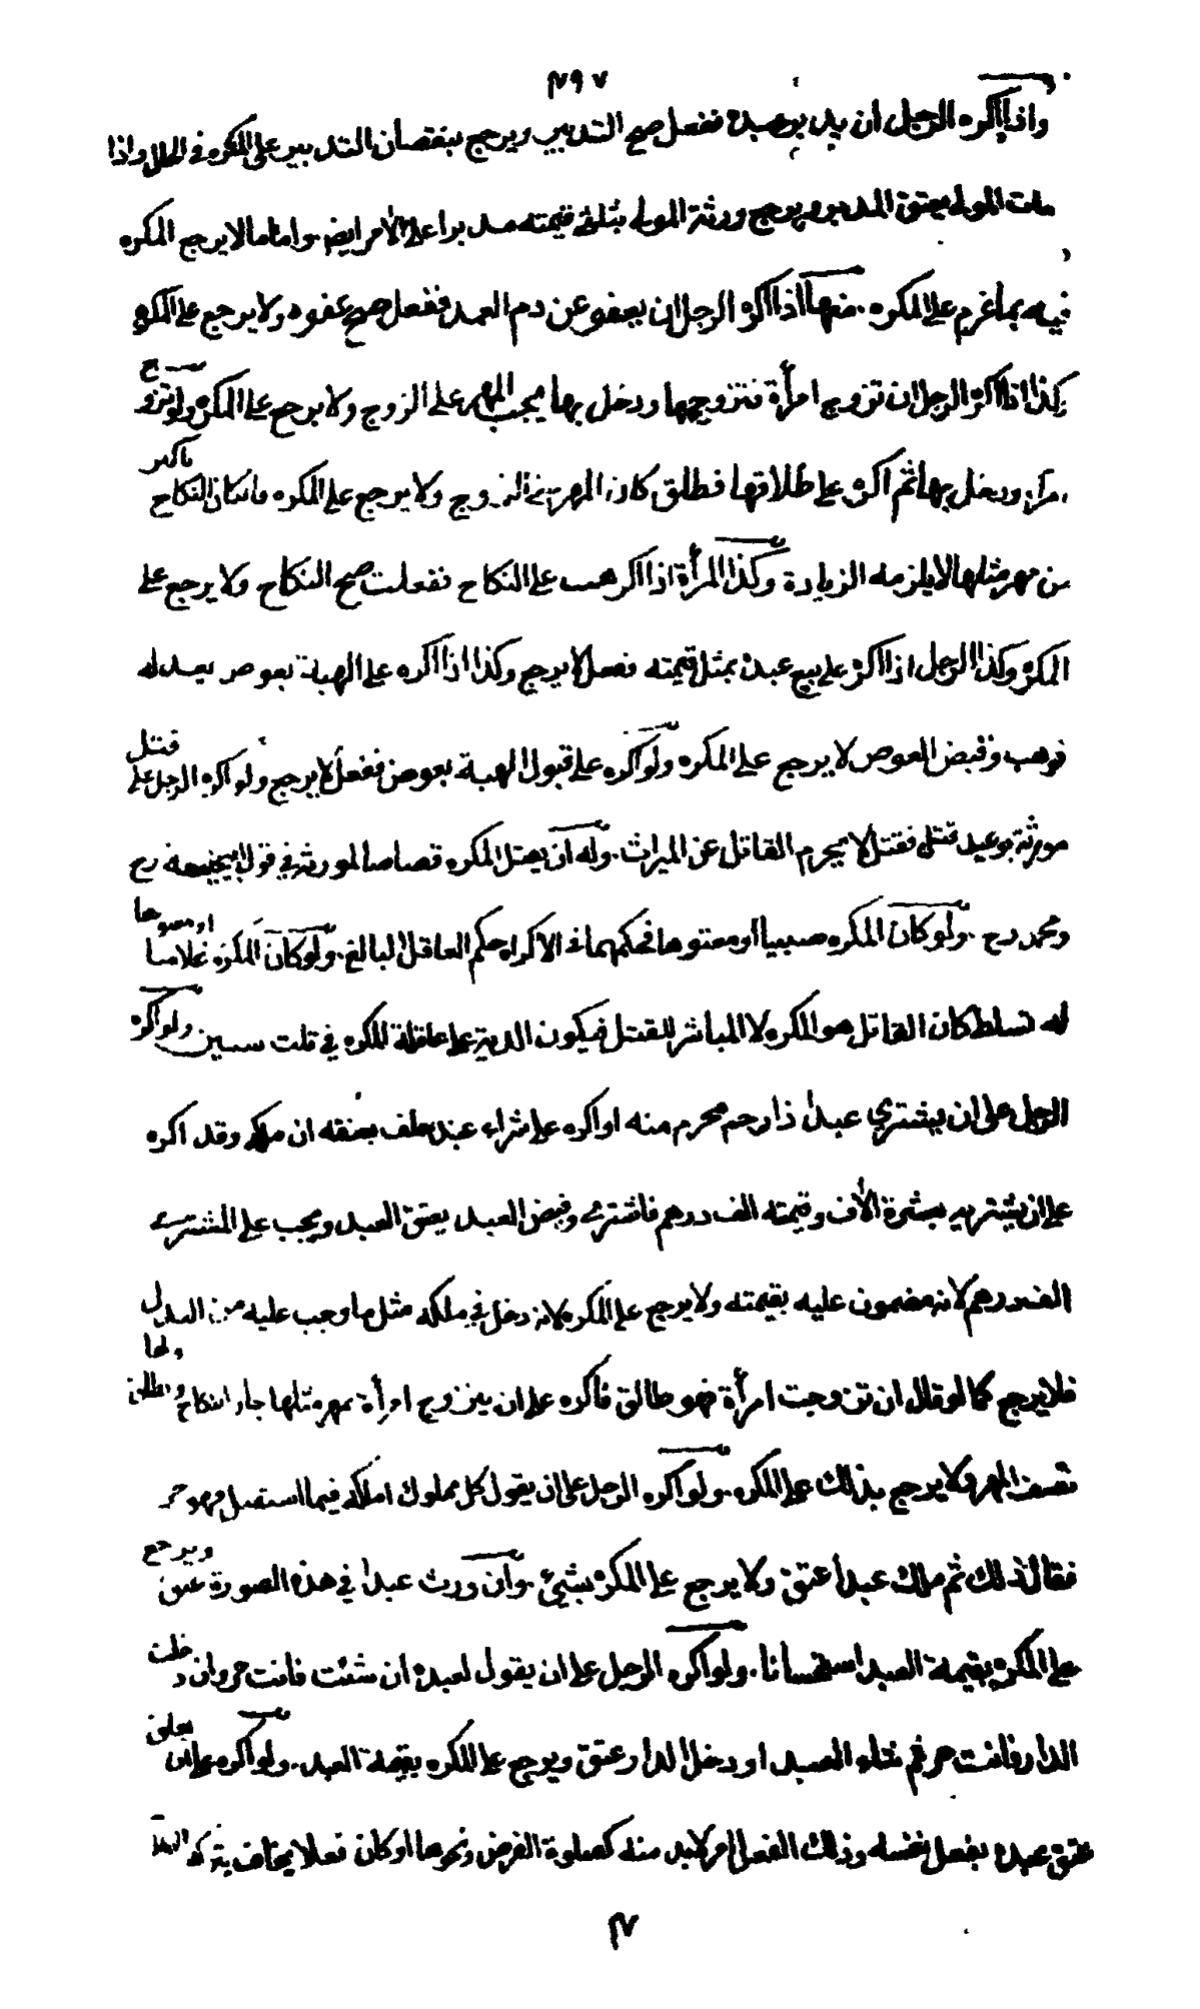 ٤٩٧
واذا اكره الرجل ان يدبر عبده ففعل صح التدبير ويرجع بنقصان التدبير على المكره في الحال واذا
مات المولى يعتق المدبر ويرجع ورثة المولى بثلثى قيمته مدبرا على الآمر ايضا. واما ما لا يرجع المكره
فيه بما غرم على المكره. فمنها اذا اكره الرجل ان يعفو عن دم العمد ففعل صح عفوه ولا يرجع على المكره
كذا اذا اكره الرجل ان تزوج امرأة فتزوجها ودخل بها يجب المهر على الزوج ولا يرجع على المكره ولو تزوج
امرأة ودخل بها ثم اكره على طلاقها فطلق كان المهر على الزوج ولا يرجع على المكره فان كان النكاح باكثر
من مهر مثلها لا يلزمه الزيادة وكذا المرأة اذا اكرهت على النكاح ففعلت صح النكاح ولا يرجع على
المكره وكذا الرجل اذا اكره على بيع عبده بمثل قيمته ففعل لا يرجع وكذا اذا اكره على الهبة بعوض يعدله
فوهب وقبض العوض لا يرجع على المكره ولو اكره على قبول الهبة بعوض ففعل لا يرجع ولو اكره الرجل على قتل
مورثه بوعيد قتل فقتل لا يحرم القاتل عن الميراث. وله ان يقتل المكره قصاصا لمورثه في قول ابي حنيفة رح
ومحمد رح. ولو كان المكره صبيا او معتوها فحكمهما في الاكراه حكم العاقل البالغ. ولو كان المكره غلاما او معتوها
له تسلط كان القاتل هو المكره لا المباشر للقتل فيكون الدية على عاقلة المكره في ثلث سنين ولو اكره
الرجل على ان يشتري عبدا ذا رحم محرم منه او اكره على شراء عبد حلف بعتقه ان ملكه وقد اكره
على ان يشتريه بعشرة الآف وقيمته الف درهم فاشترى وقبض العبد يعتق العبد ويجب على المشترى
الف درهم لانه مضمون عليه بقيمته ولا يرجع على المكره لانه دخل في ملكه مثل ما وجب عليه من البدل
فلا يرجع كما لو قال ان تزوجت امرأة فهو طالق فاكره على ان يتزوج امرأة بمهر مثلها جاز النكاح وتطلق ولها
نصف المهر ولا يرجع بذلك على المكره. ولو اكره الرجل على ان يقول كل مملوك املكه فيما استقبل فهو حر
فقال ذلك ثم ملك عبدا عتق ولا يرجع على المكره بشيئ. وان ورث عبدا في هذه الصورة عتق ويرجع
على المكره بقيمة العبد استحسانا. ولو اكره الرجل على ان يقول لعبده ان شئت فانت حر وان دخلت
الدار فانت حر ثم شاء العبد او دخل الدار عتق ويرجع على المكره بقيمة العبد. ولو اكره على ان يعلق
عتق عبده بفعل نفسه وذلك الفعل امر لا بد منه كصلوة الفرض ونحوها او كان فعلا يخاف بتركه الهلاك